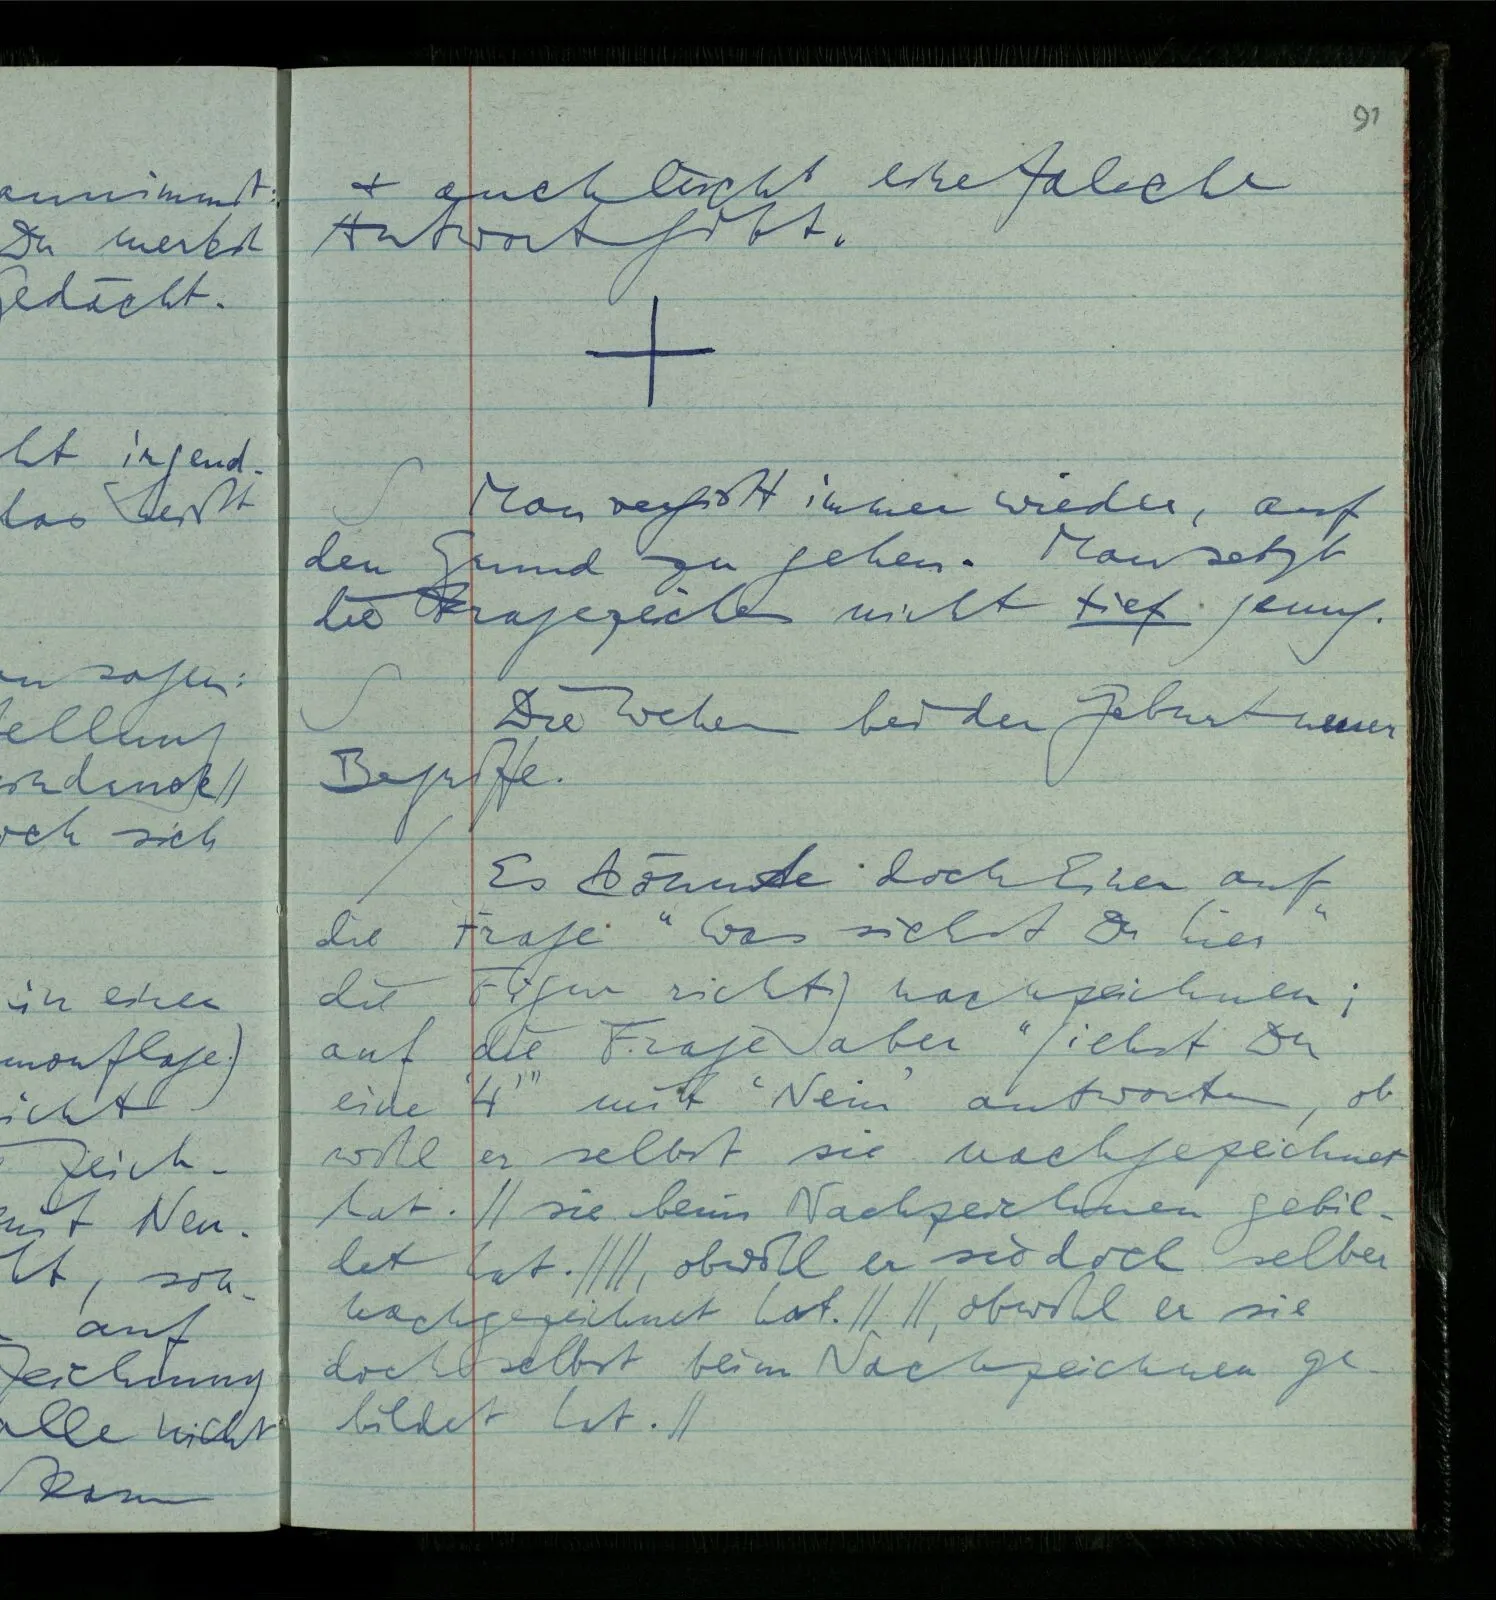 annimmt:
Du merkst
Gedächt.
ht irgend-
das heißt
sagen:
tellung
och sich
in einer
mouflage)
icht
zeich-
mit Neu-
ht, son-
auf
Zeichnung
alle nicht
kann
91
+ auch leicht eine falsche
Antwort gibt.
∫ Man vergißt immer wieder, auf
den Grund zu gehen. Man setzt
die Fragezeichen nicht tief genug.
∫ Die Wehen bei der Geburt neuer
Begriffe.
/ Es könnte doch Einer auf
die Frage "Was siehst Du hier"
die Figur richtig nachzeichnen;
auf die Frage aber "siehst Du
eine '4'" mit 'Nein' antworten, ob
wohl er selbst sie nachgezeichnet
hat. // sie beim Nachzeichnen gebil-
det hat.////, obwohl er sie doch selber
nachgezeichnet hat.// //, obwohl er sie
doch selbst beim Nachzeichnen ge-
bildet hat.//